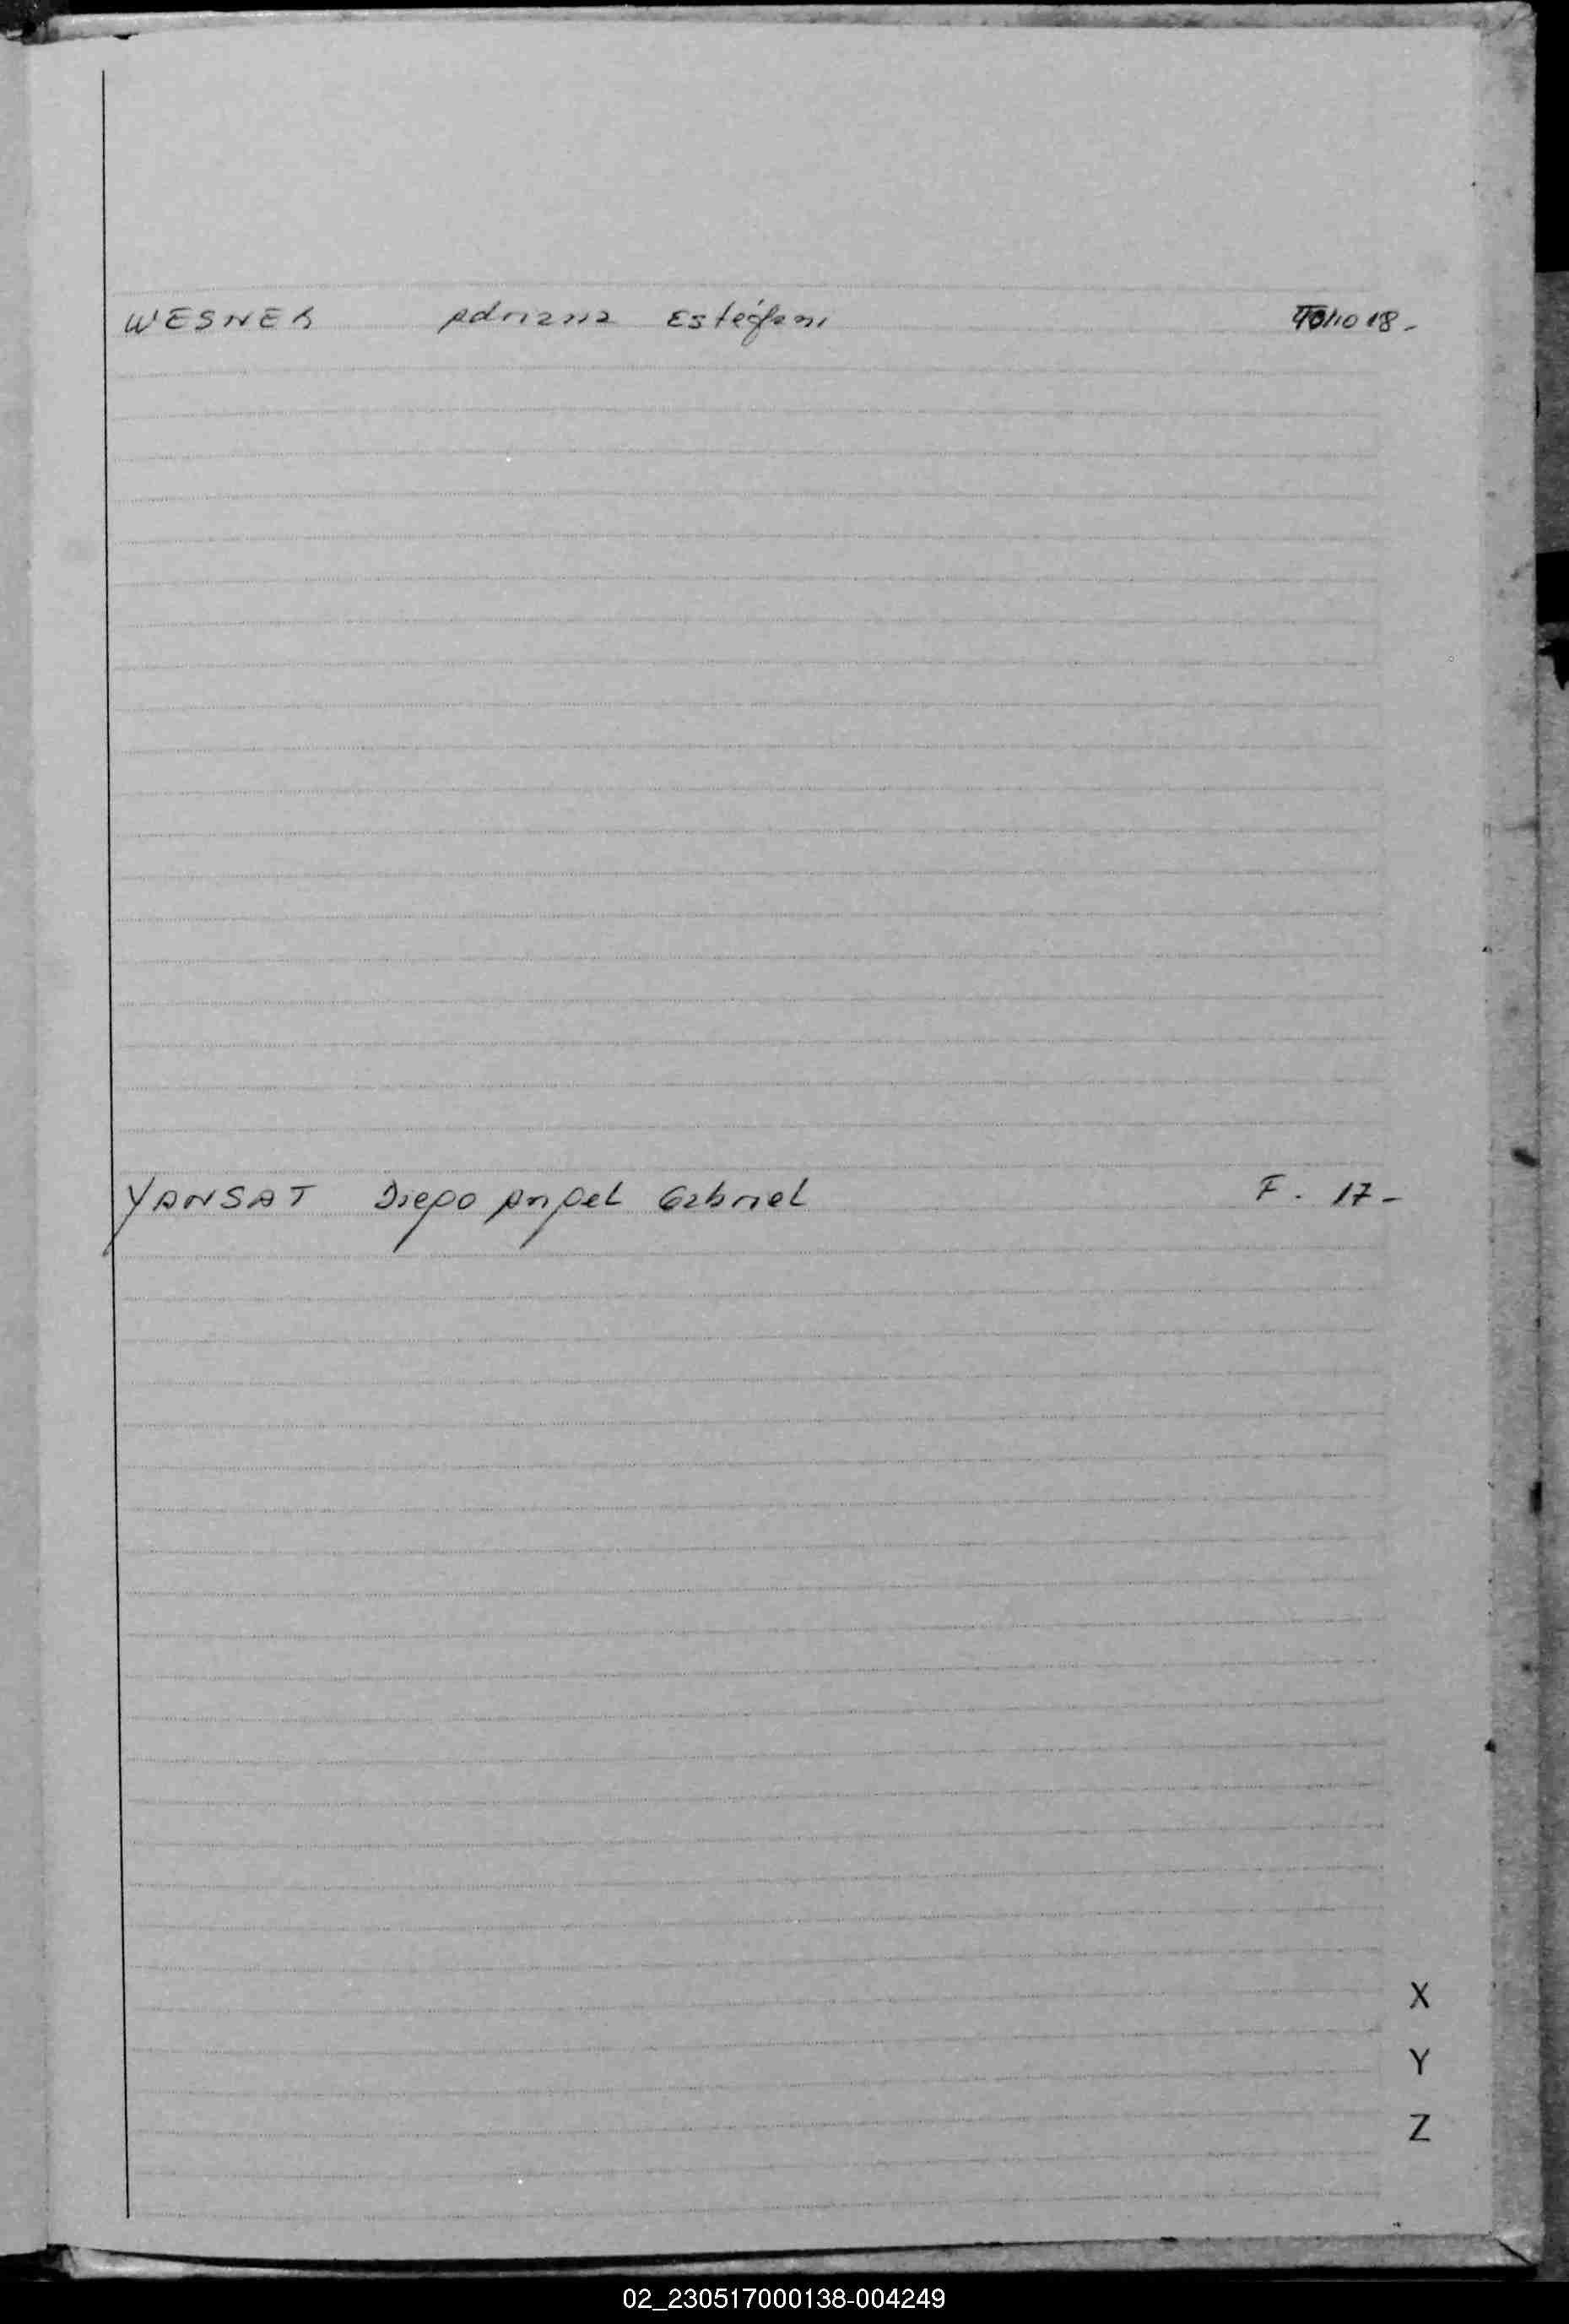 WESNER Adriana Estéfani Folio 18-
YANSAT Diego Angel Gabriel F. 17-
X
Y
Z
02_230517000138-004249